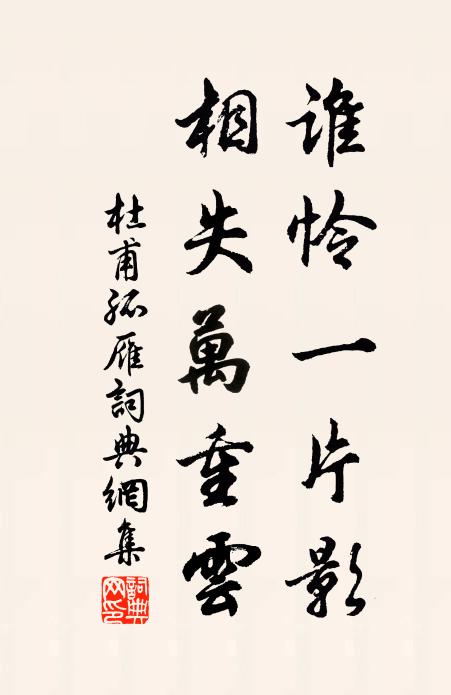 誰怜一片影
相失萬重雲
杜甫孤雁詞典網集
詞典網印